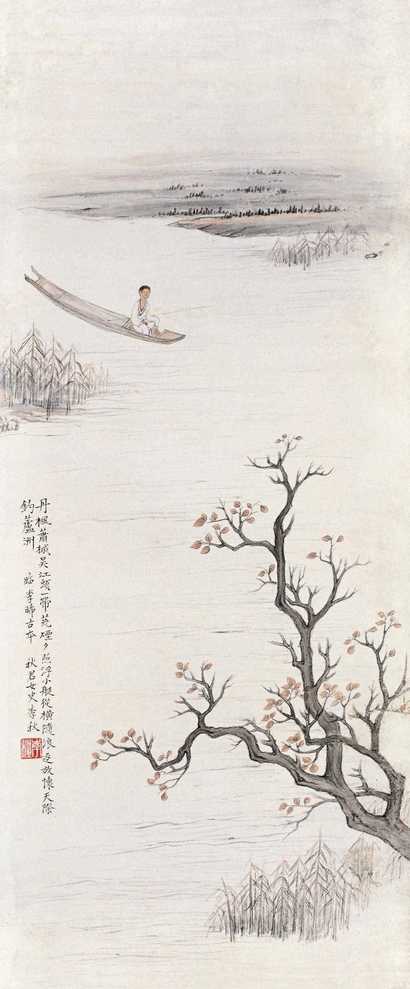 丹楓蕭槭吳江頭一帶荒煙夕照浮小艇從橫隨浪逐放懷天際
釣蘆洲
臨李晞古本 秋君女史李秋